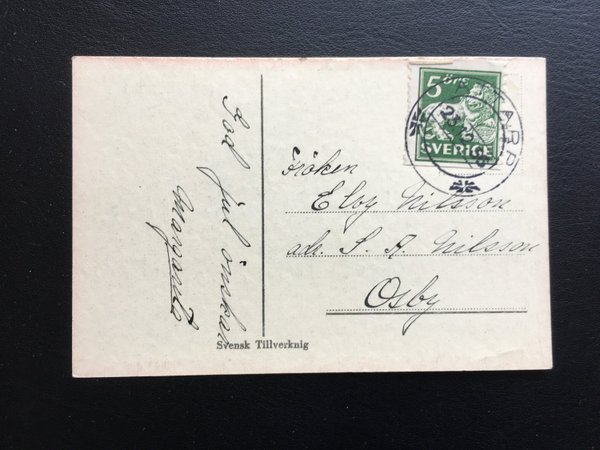 God jul önskar
Margareta
5 ÖRE
SVERIGE
Fröken
Elby Nilsson
adr. S. A. Nilsson
Osby
Svensk Tillverknig